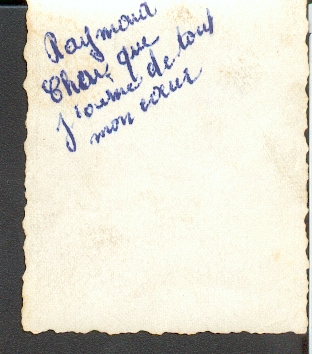 Raymond
Chéri que
j'aime de tout
mon cœur